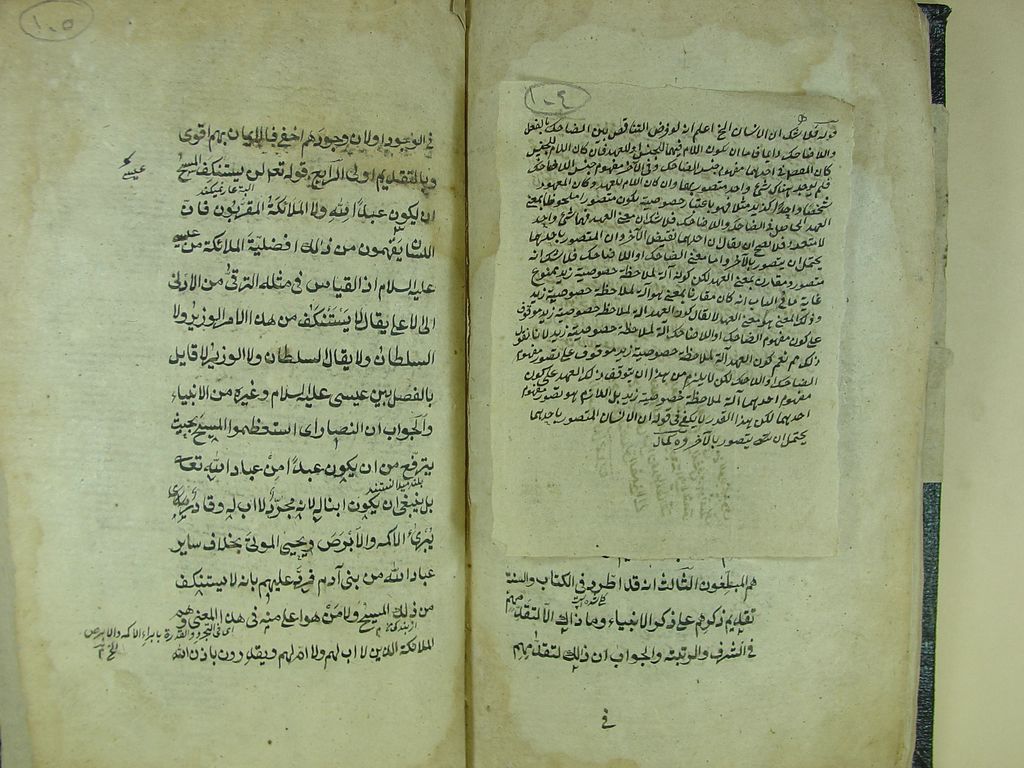 ١٠٤
قوله فلا شك ان الانسان الخ اعلم انه لو فرض التناقض بين الضاحك بالفعل
واللاضاحك دائما فاما ان يكون اللام فيهما للجنس او للعهد فان كان اللام للجنس
كان المعتبر في احدهما مفهوم جنس الضاحك وفي الآخر مفهوم جنس اللاضاحك
فلم يوجد هناك شئ واحد متصور بهما وان كان اللام للعهد وكان المعهود
شخصا واحدا كزيد مثلا فهو باعتبار خصوصية يكون متصورا ملحوظا بمعنى
العهد الحاصل في الضاحك واللاضاحك فلا شك ان معنى العهد فيهما شئ واحد
لا متعدد فلا يصح ان يقال ان احدهما نقيض الآخر وان المتصور باحدهما
يحتمل ان يتصور بالآخر واما معنى الضاحك او اللاضاحك فلا شك انه
متصور ومقارن بمعنى العهد لكن كونه آلة لملاحظة خصوصية زيد ممنوع
غاية ما في الباب انه كان مقارنا لمعنى هو آلة لملاحظة خصوصية زيد
وذلك المعنى هو معنى العهد لا يقال كون العهد آلة لملاحظة خصوصية زيد موقوف
على كون مفهوم الضاحك او اللاضاحك آلة لملاحظة خصوصية زيد لانا نقول
ذلك مم نعم كون العهد آلة لملاحظة خصوصية زيد موقوف على تصور مفهوم
الضاحك او اللاضاحك لكن لا يلزم من هذا ان يتوقف ذلك العهد على كون
مفهوم احدهما آلة لملاحظة خصوصية زيد بل اللازم هو تصور مفهوم
احدهما لكن هذا القدر لا يكفي في قوله ان الانسان المتصور باحدهما
يحتمل ان يتصور بالآخر
هم المبلغون الثالث انه قد اطرد في الكتاب والسنة
تقديم ذكرهم على ذكر الانبياء وما ذلك الا لتقدمهم
في الشرف والمرتبة والجواب ان ذلك لتقدمهم
في
١٠٥
في الوجود او لان وجودهم اخفى فالايمان بهم اقوى
وبالتقديم اولى الرابع قوله تعالى لن يستنكف المسيح
عيسى
ان يكون عبدا لله ولا الملائكة المقربون فان
اللسان يفهمون من ذلك افضلية الملائكة من عيسى
عليه السلام اذ القياس في مثله الترقى من الادنى
الى الاعلى يقال لا يستنكف من هذا الامر الوزير ولا
السلطان ولا يقال السلطان ولا الوزير ثم لا قايل
بالفصل بين عيسى عليه السلام وغيره من الانبياء
والجواب ان النصارى استعظموا المسيح بحيث
يترفع من ان يكون عبدا من عباد الله تعالى
بل ينبغي ان يكون ابنا له لانه مجرد لا اب له وقادر
يبرئ الاكمه والابرص ويحيي الموتى بخلاف ساير
عباد الله من بنى آدم فرد عليهم بانه لا يستنكف
من ذلك المسيح ولا من هو اعلى منه في هذا المعنى وهم
اي في التجرد والقدرة بابراء الاكمه والابرص
الملائكة الذين لا اب لهم ولا ام لهم ويقدرون باذن الله